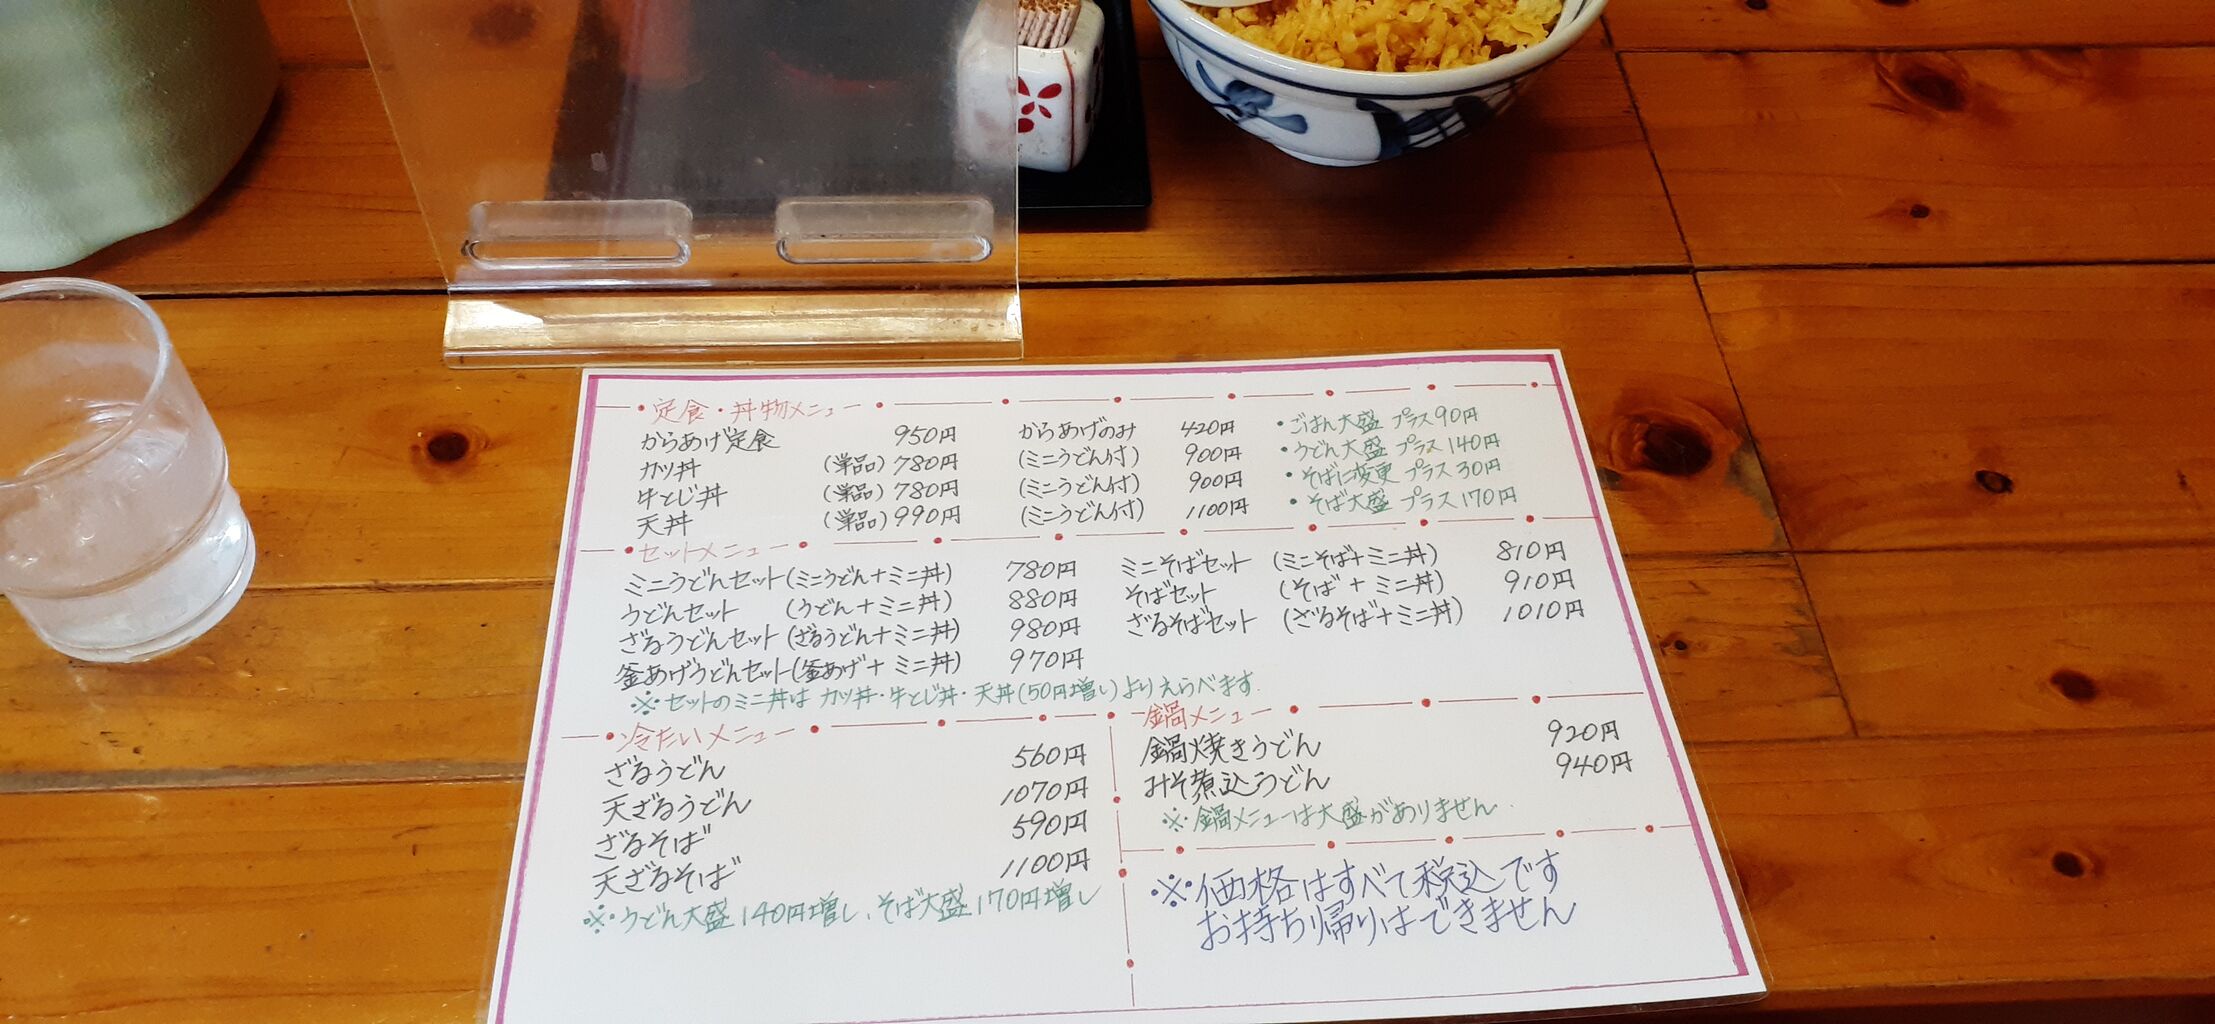 定食・丼物メニュー
からあげ定食 950円 からあげのみ 420円 ・ごはん大盛 プラス90円
カツ丼 (単品) 780円 (ミニうどん付) 900円 ・うどん大盛 プラス140円
牛とじ丼 (単品) 780円 (ミニうどん付) 900円 ・そばに変更 プラス30円
天丼 (単品) 990円 (ミニうどん付) 1100円 ・そば大盛 プラス170円
セットメニュー
ミニうどんセット(ミニうどん+ミニ丼) 780円 ミニそばセット (ミニそば+ミニ丼) 810円
うどんセット (うどん+ミニ丼) 880円 そばセット (そば+ミニ丼) 910円
ざるうどんセット(ざるうどん+ミニ丼) 980円 ざるそばセット (ざるそば+ミニ丼) 1010円
釜あげうどんセット(釜あげ+ミニ丼) 970円
※セットのミニ丼は カツ丼・牛とじ丼・天丼(50円増し)よりえらべます.
冷たいメニュー
ざるうどん 560円
天ざるうどん 1070円
ざるそば 590円
天ざるそば 1100円
※うどん大盛140円増し、そば大盛170円増し
鍋メニュー
鍋焼きうどん 920円
みそ煮込うどん 940円
※鍋メニューは大盛がありません.
※価格はすべて税込です
お持ち帰りはできません